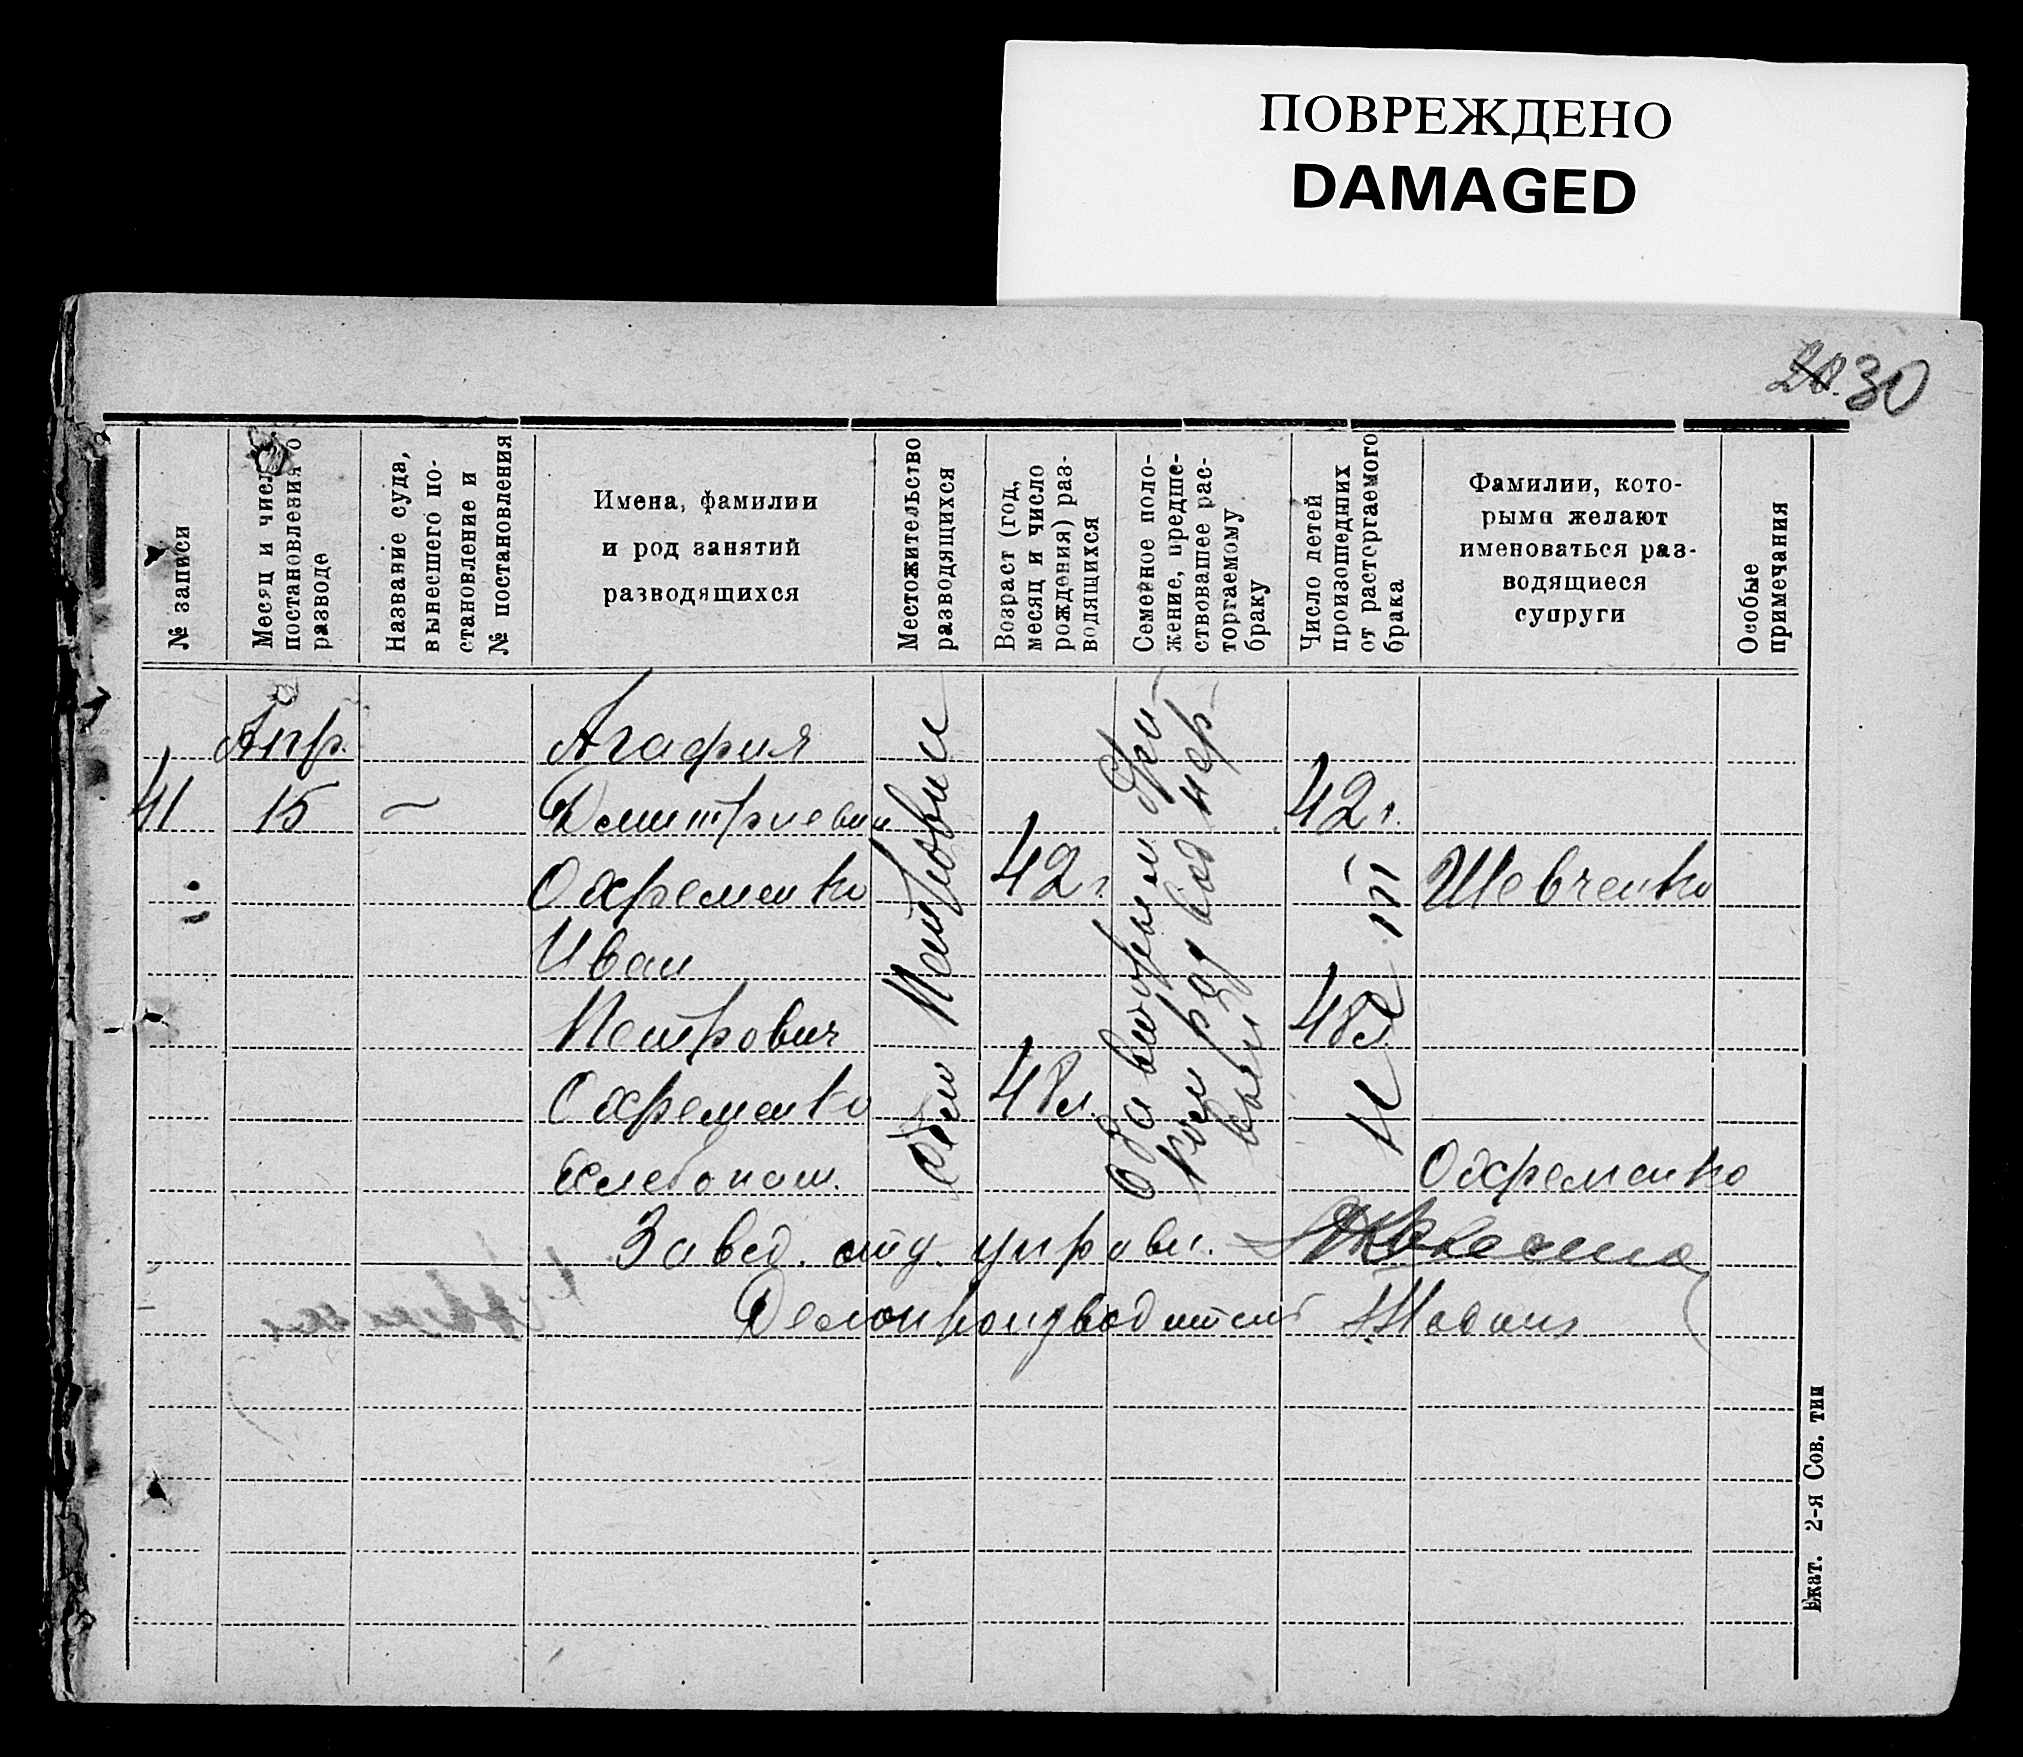 ПОВРЕЖДЕНО
DAMAGED
28. 30
№ записи
Месяц и число
постановления о
разводе
Название суда,
вынесшего по-
становление и
№ постановления
Имена, фамилии
и род занятий
разводящихся
Местожительство
разводящихся
Возраст (год,
месяц и число
рождения) раз-
водящихся
Семейное поло-
жение, предше-
ствовавшее рас-
торгаемому
браку
Число детей
происшедших
от расторгаемого
брака
Фамилии, кото-
рыми желают
именоваться раз-
водящиеся
супруги
Особые
примечания
Апр.
41
15
—
Агафия
Дмитриевна
Охременко
Иван
Петрович
Охременко
хлебопаш.
Петровки
42 г
48 л.
Оба вторым
42 г.
48 л.
Шевченко
Охременко
Завед. отд. управл.
Делопроизводитель
Екат. 2-я Сов. тип